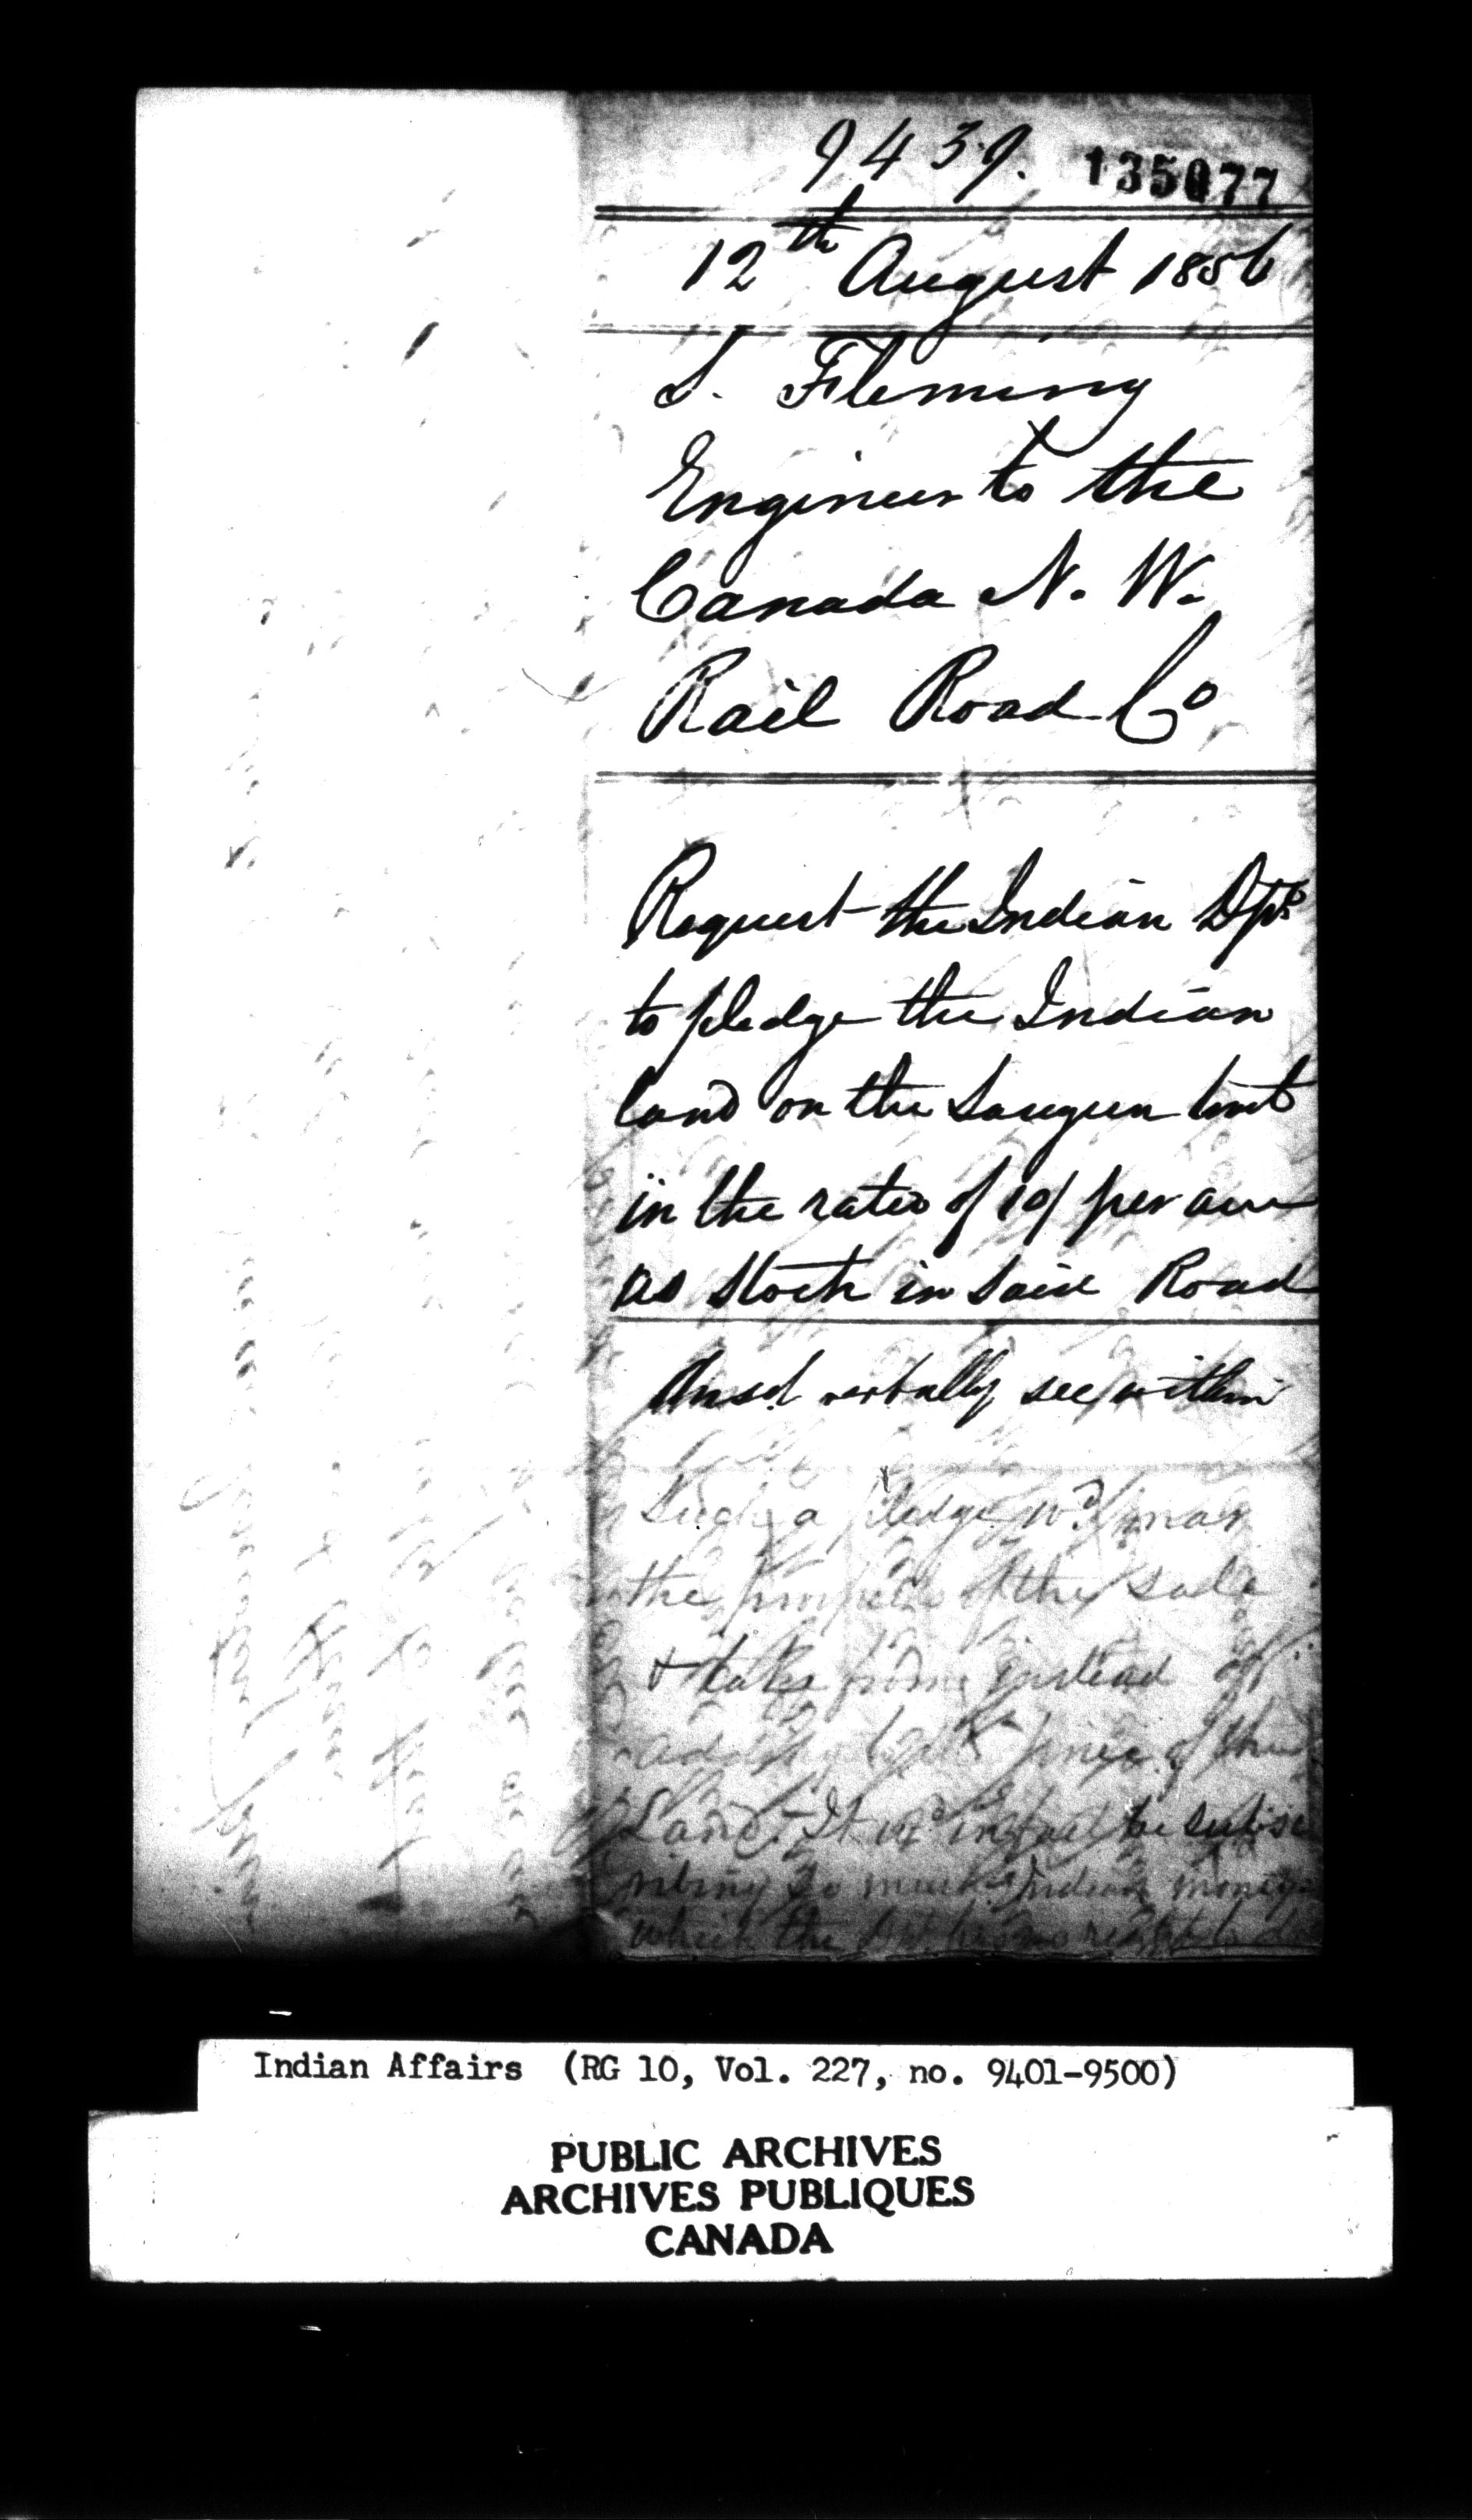 9439. 135077
12th August 1856
S. Fleming
Engineer to the
Canada N. W.
Rail Road Co
Request the Indian Dpt
to pledge the Indian
land on the Saugeen tract
in the ratio of 10/ per acre
as Stock in said Road
Ansd verbally see within
Such a pledge wd mar
the of the sale
& take from instead of
adding to the price of the
Land. It wd in fact be subsc
ribing so much Indian money
which the Dpt has no right to do
Indian Affairs (RG 10, Vol. 227, no. 9401-9500)
PUBLIC ARCHIVES
ARCHIVES PUBLIQUES
CANADA